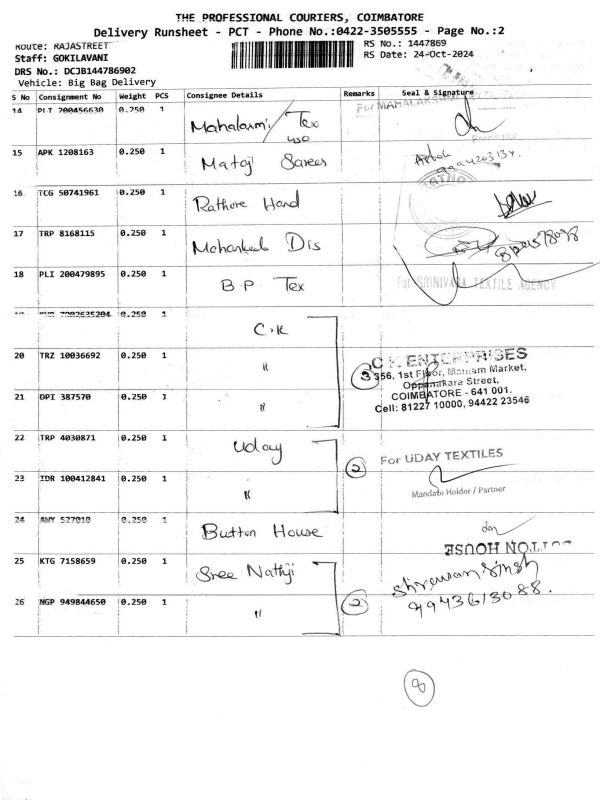 THE PROFESSIONAL COURIERS, COIMBATORE
Delivery Runsheet - PCT - Phone No.:0422-3505555 - Page No.:2
Route: RAJASTREET
RS No.: 1447869
Staff: GOKILAVANI
RS Date: 24-Oct-2024
DRS No.: DCJB144786902
Vehicle: Big Bag Delivery
S No Consignment No Weight PCS Consignee Details Remarks Seal & Signature
14 PLI 200456630 0.250 1 Mahalaxmi Tex
For MAHALAKSHMI
15 APK 1208163 0.250 1 Mataji Sarees Ashok
16 TCG 50741961 0.250 1 Rathore Hand
17 TRP 8168115 0.250 1 Mohanlal Dis
18 PLI 200479895 0.250 1 B.P Tex For SRINIVASA TEXTILE AGENCY
19 7002635204 0.250 1 C.K
20 TRZ 10036692 0.250 1 " 3 C K ENTERPRISES
356, 1st Floor, Market,
Oppanakara Street,
21 DPI 387570 0.250 1 " COIMBATORE - 641 001.
Cell: 81227 10000, 94422 23546
22 TRP 4030871 0.250 1 Uday
2 For UDAY TEXTILES
23 IDR 100412841 0.250 1 "
Mandate Holder / Partner
24 AWY 527010 0.250 1 Button House
BUTTON HOUSE
25 KTG 7158659 0.250 1 Sree Nathji Shrawan Singh
26 NGP 949844650 0.250 1 " 2 9943613088.
8